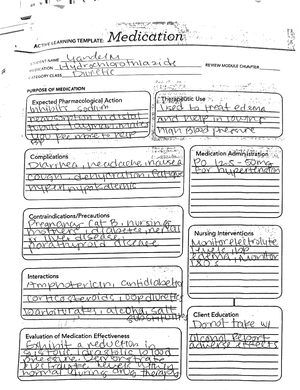 ACTIVE LEARNING TEMPLATE: Medication
STUDENT NAME
MEDICATION Hydrochlorothiazide
REVIEW MODULE CHAPTER
CATEGORY CLASS Diuretic
PURPOSE OF MEDICATION
Expected Pharmacological Action
Inhibits sodium
reabsorption in distal
you pee more to help
Therapeutic Use
Used to treat edema
and help in lowering
high blood pressure
Complications
Diarrhea, headache, nausea
cough, dehydration, fatigue
hyperlipidemic
Medication Administration
PO 12.5-50mg
for hypertension
Contraindications/Precautions
Pregnancy Cat B, nursing
mothers, diabetes, renal
or liver disease,
parathyroid disease
Nursing Interventions
Monitor electrolyte
levels, bp
edema, Monitor
I&O's
Interactions
Amphotericin, antidiabetic
corticosteroids, loop diuretics
barbiturates, alcohol, salt
substitutes
Client Education
Do not take w/
alcohol Report
adverse effects
Evaluation of Medication Effectiveness
Exhibit a reduction in
systolic/diastolic blood
electrolyte levels within
normal during drug therapy